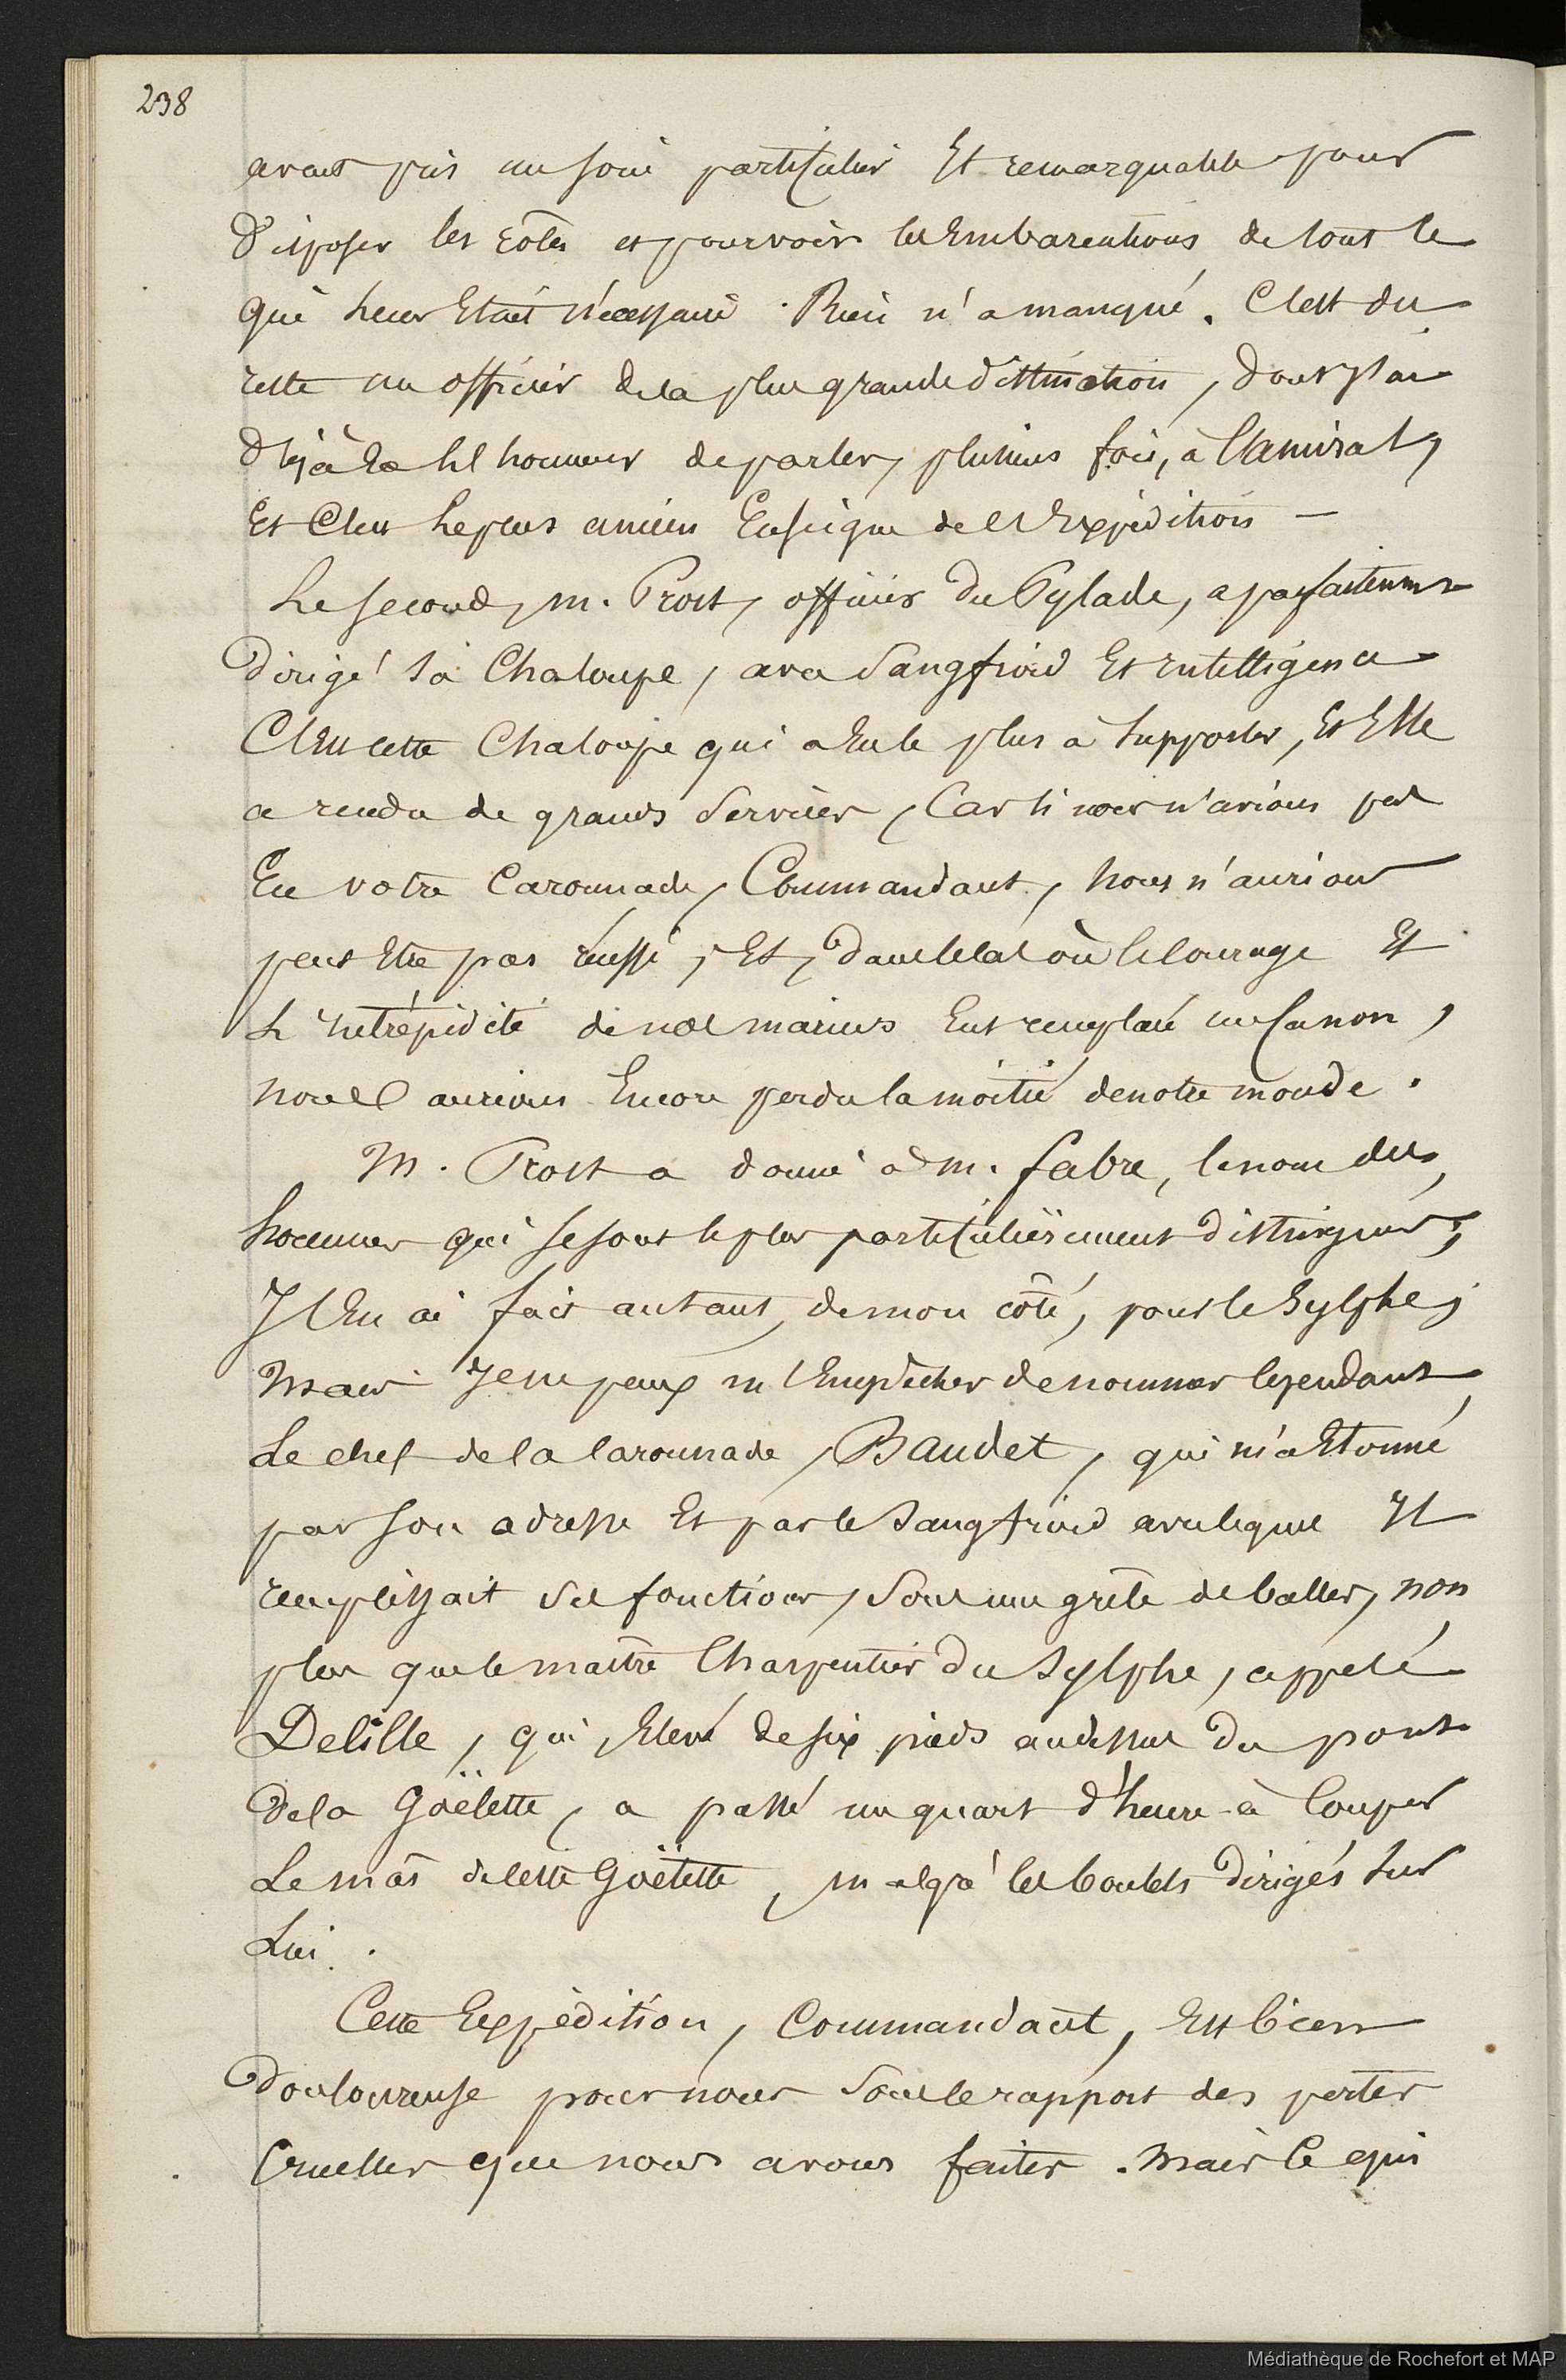 238
avait pris un soin particulier Et remarquable pour
Disposer les rôles et pourvoir les Embarcations de tout ce
qui leur Etait nécessaire. Rien n'a manqué. C'est du
reste un officier de la plus grande distinction, dont j'ai
déjà Eu l'honneur de parler, plusieurs fois, à l'amiral,
Et C'est le plus ancien Enseigne de l'Expédition —
Le second, m. Prost, officier du Pylade, a parfaitement
Dirigé sa Chaloupe, avec Sangfroid Et intelligence
C'est cette Chaloupe qui a Eu le plus à Supporter, Et Elle
a rendu de grands Services, Car si nous n'avions pas
Eu votre Caronnade, Commandant, nous n'aurions
peut Etre pas réussi, Et, dans le cas où le Courage Et
L'intrépidité de nos marins Eut remplacé un Canon,
nous aurions Encore perdu la moitié de notre monde.
M. Prost a donné à m. fabre, le nom des
hommes qui se sont le plus particulièrement distingués;
J'En ai fait autant, de mon côté, pour le Sylphe;
mais Je ne peux m'Empêcher de nommer Cependant
Le chef de la Caronnade, Baudet, qui m'a Etonné
par son adresse Et par le Sangfroid avec lequel Il
remplissait Ses fonctions, Sous une grêle de balles, non
plus que le maître Charpentier du Sylphe, appelé
Delille, qui, Elevé de six pieds au dessus du pont
de la Goëlette, a passé un quart d'heure à Couper
Le mât de Cette Goëlette, malgré les boulets dirigés Sur
Lui.
Cette Expédition, Commandant, Est bien
Douloureuse pour nous Sous le rapport des pertes
Cruelles que nous avons faites. mais Ce qui
Médiathèque de Rochefort et MAP